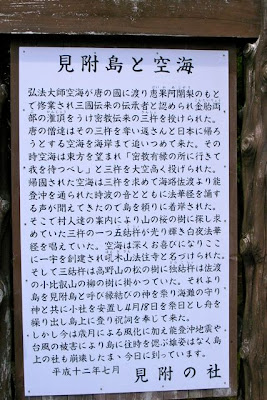 見附島と空海
弘法大師空海が唐の國に渡り恵果阿闍梨のもと
で修業され三國伝来の伝承者と認められ金胎両
部の潅頂をうけ密教伝来の三杵を授けられた。
唐の僧達はその三杵を奪い返さんと日本に帰ろ
うとする空海を海岸まで追いつめて来た。その
時空海は東方を望まれ「密教有縁の所に行きて
我を待つべし」と三杵を大空高く投げられた。
帰國された空海は三杵を求めて海路佐渡より能
登沖を通られた時波の音とともに法華経を誦す
る声が聞えてきたので島を頼りに着岸された。
そこで村人達の案内により山の桜の樹に探し求
めていた三杵の一つ五鈷杵が光り輝き白夜法華
経を唱えていた。空海は深くお喜びになりここ
に一宇を創建され吼木山法住寺と名づけられた。
そして三鈷杵は高野山の松の樹に独鈷杵は佐渡
の小比叡山の柳の樹に掛かっていた。それより
島を見附島と呼び縁結びの神を祭り海難の守り
神と共に小社を安置し4月18日を祭日とし舟を
繰り出し島上に登り祝詞を奉じて来た。
しかし今は歳月による風化に加え能登沖地震や
台風の被害により島に往時を偲ぶ雄姿はなく島
上の社も崩壊したまゝ今日に到っています。
平成十二年七月　見附の社